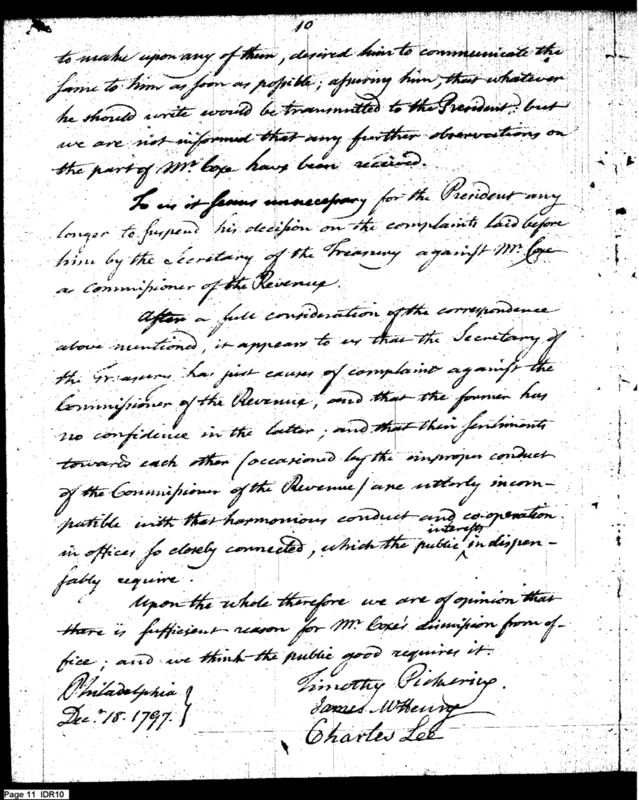 10
to make upon any of them, desired him to communicate the
same to him as soon as possible; assuring him, that whatever
he should write would be transmitted to the President: but
we are not informed that any further observations on
the part of Mr. Coxe have been received.
To us it seems unnecessary for the President any
longer to suspend his decision on the complaints laid before
him by the Secretary of the Treasury against Mr. Coxe
as Commissioner of the Revenue.
After a full consideration of the correspondence
above mentioned, it appears to us that the Secretary of
the Treasury has just causes of complaint against the
Commissioner of the Revenue, and that the former has
no confidence in the latter; and that their sentiments
towards each other (occasioned by the improper conduct
of the Commissioner of the Revenue) are utterly incom-
patible with that harmonious conduct and co-operation
in offices so closely connected, which the public interests indispen-
sably require.
Upon the whole therefore we are of opinion that
there is sufficient reason for Mr. Coxe's dismission from of-
fice; and we think the public good requires it.
Philadelphia
Decr. 18. 1797.
Timothy Pickering.
James McHenry
Charles Lee
Page 11 IDR10